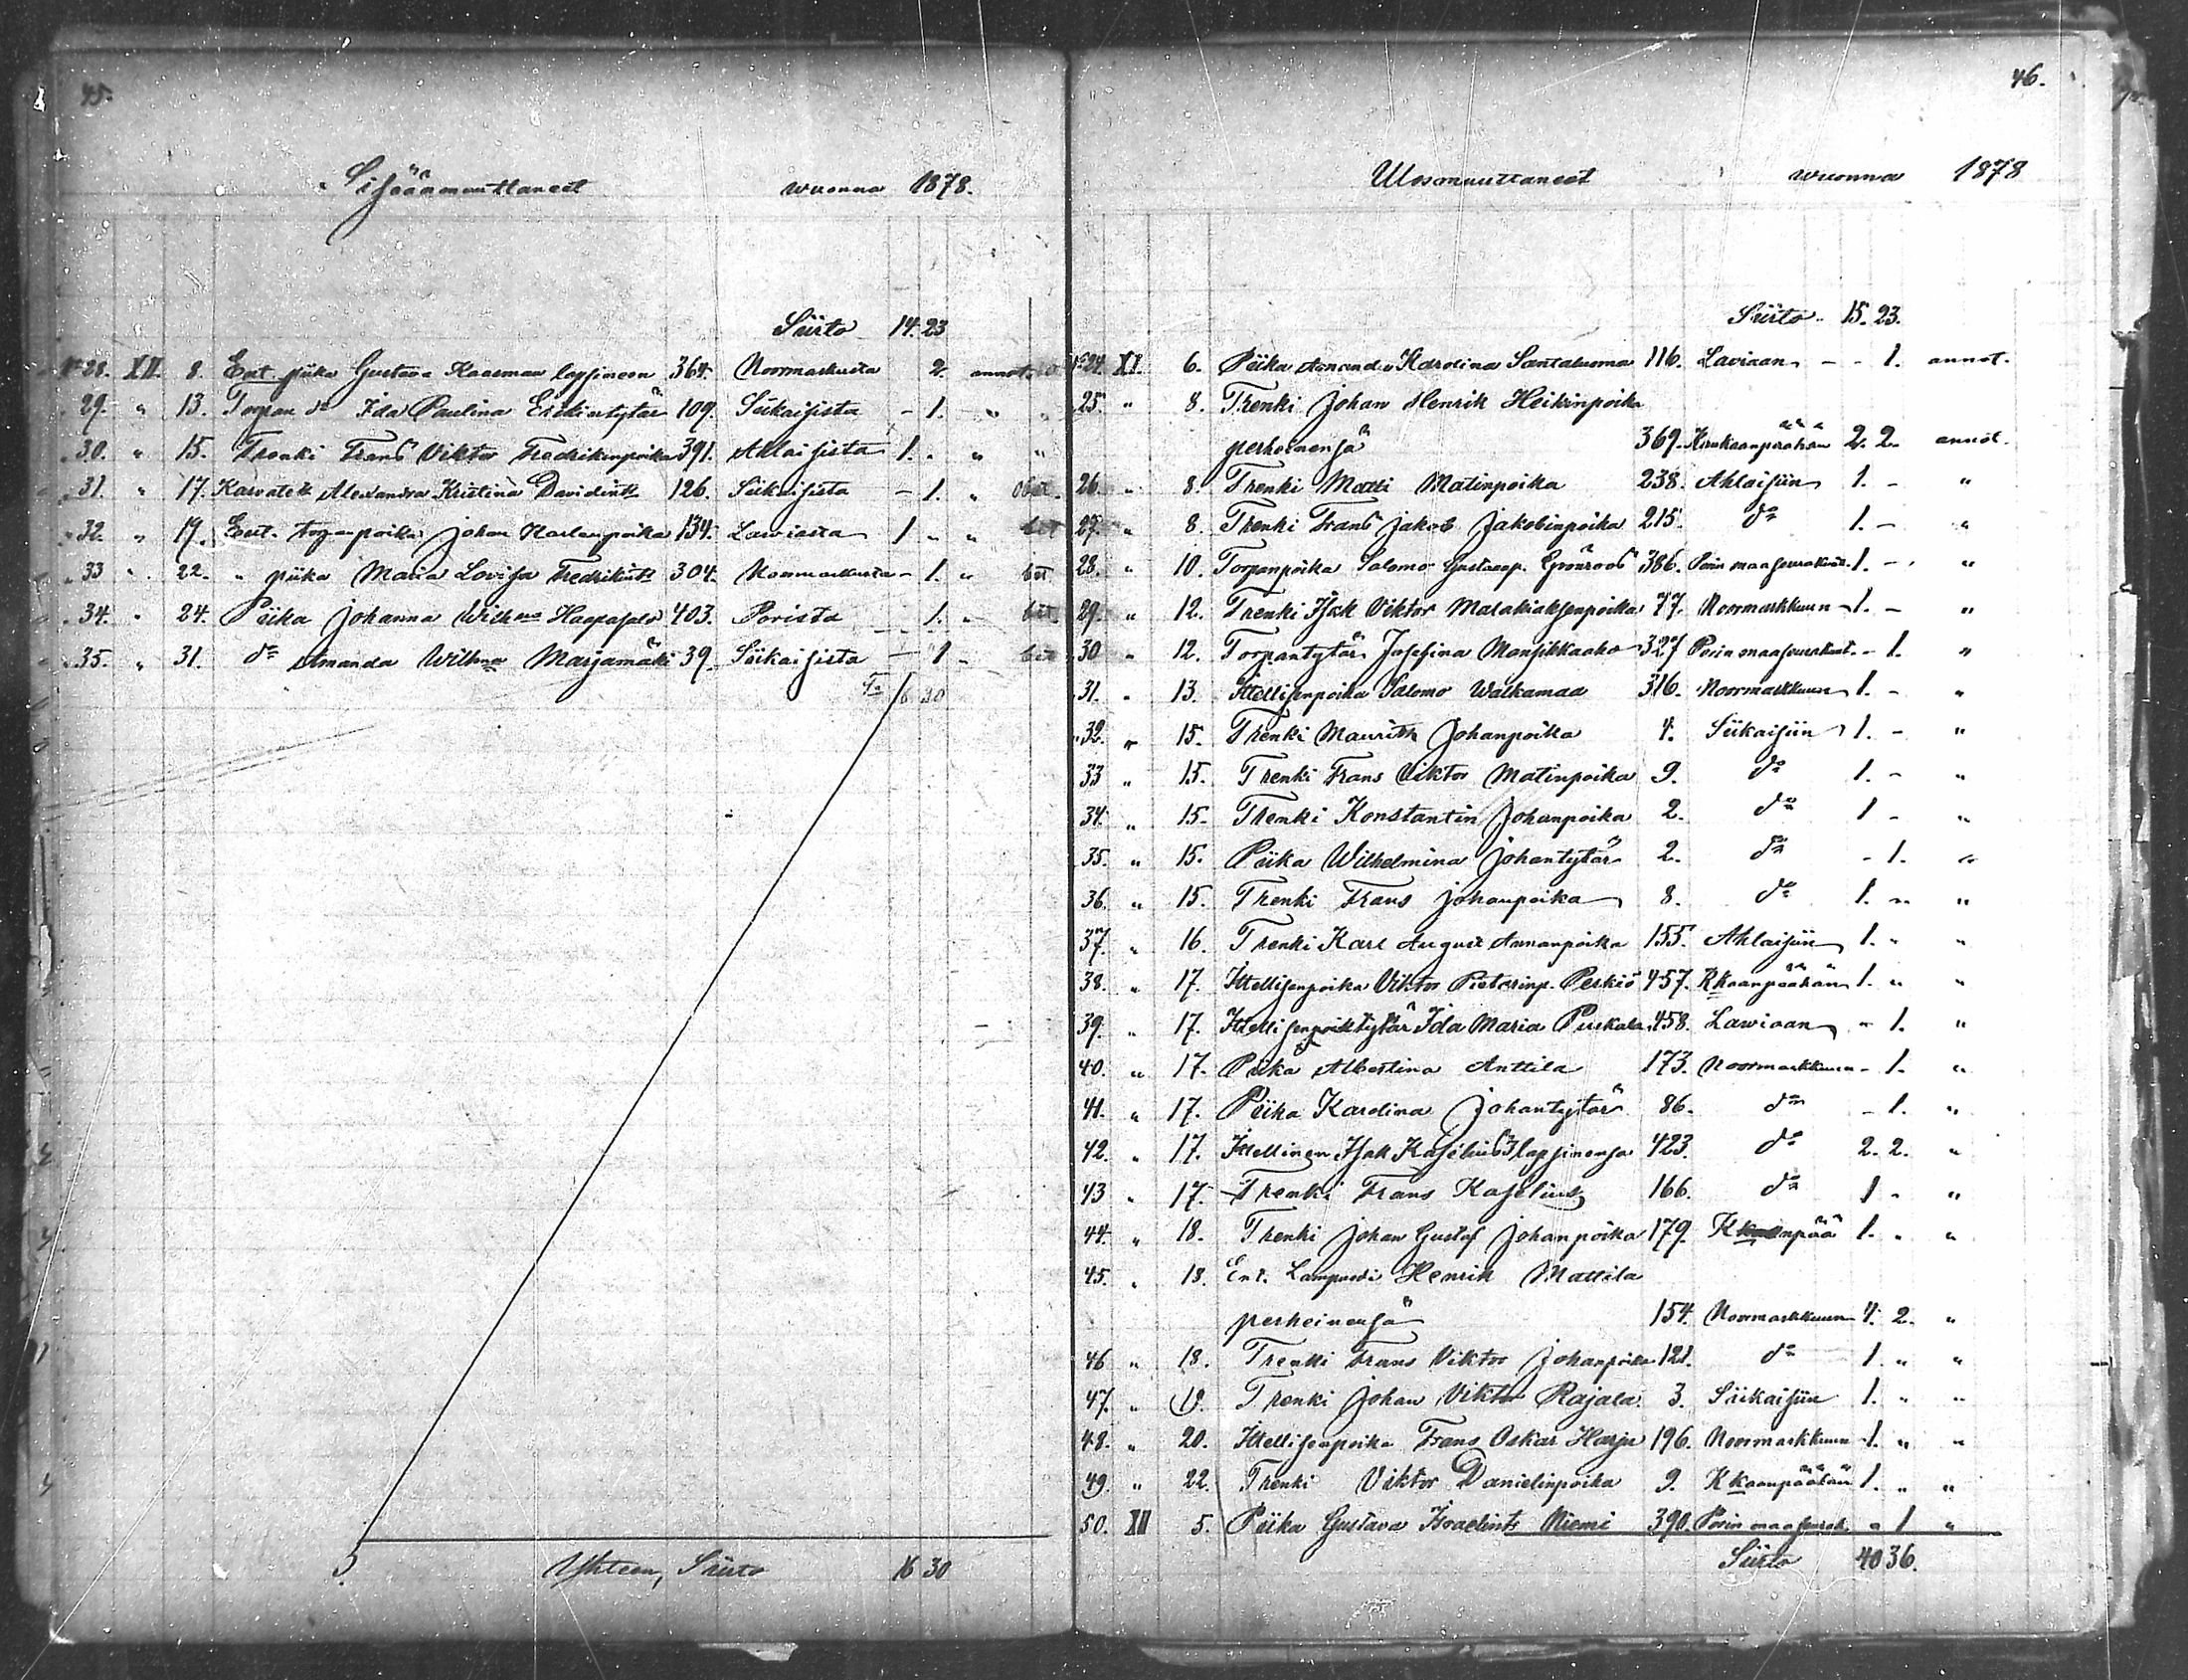 45.
Sisäänmuuttaneet wuonna 1878.
Siirto 14. 23
No 28. XII. 8. Ent. piika Gustava Kaasman lapsineen 364. Noormarkusta 2. annot.
29. " 13. Torpan dr Ida Paulina Erikintytär 109. Siikaisista - 1. " "
30. " 15. Trenki Frans Viktor Fredrikinpoika 391. Ahlaisista 1. " " "
31. " 17. Kasvatett Alexandra Kristina Davidint. 126. Siikaisista - 1. "
32. " 19. Ent. torpanpoika Johan Karlenpoika 134. Lawiasta 1 " "
33 " 22. " piika Maria Lovisa Fredrikint. 304. Noormarkusta - 1. "
34. " 24. Piika Johanna Wilhna Haapasalo 403. Porista - 1. "
35. " 31. do Amanda Wilhna Marjamäki 39. Siikaisista - 1 "
16 30
Yhteen, Siirto 16 30
46.
Ulosmuuttaneet wuonna 1878
Siirto 15. 23.
No 24. XI. 6. Piika Amanda Karolina Santaluoma 116. Laviaan - - 1. annot.
25. " 8. Trenki Johan Henrik Heikinpoika
perheinensä 369. Kankaanpäähän 2. 2. annot.
26. " 8. Trenki Matti Matinpoika 238. Ahlaisiin 1. - "
27. " 8. Trenki Frans Jakob Jakobinpoika 215. do 1. - "
28. " 10. Torpanpoika Salomo Gustaap. Grönroos 386. Porin maaseurakunt. 1. - "
29. " 12. Trenki Isak Viktor Malakiaksenpoika 77. Noormarkkuun 1. - "
30 " 12. Torpantytär Josefina Mansikkaaho 327 Porin maaseurakunt. - 1. "
31. " 13. Itellisenpoika Salomo Walkamaa 316. Noormarkkuun 1. - "
32. " 15. Trenki Mauritz Johanpoika 4. Siikaisiin 1. - "
33 " 15. Trenki Frans Viktor Matinpoika 9. do 1. - "
34. " 15. Trenki Konstantin Johanpoika 2. do 1 - "
35. " 15. Piika Wilhelmina Johantytär 2. do - 1. "
36. " 15. Trenki Frans Johanpoika 8. do 1. " "
37. " 16. Trenki Karl August Annanpoika 155. Ahlaisiin 1. " "
38. " 17. Itellisenpoika Viktor Pieterinp. Perkiö 457. Kkaanpäähän 1. " "
39. " 17. Ida Maria 458. Lawiaan " 1. "
40. " 17. Piika Albertina Anttila 173. Noormarkkuun - 1. "
41. " 17. Piika Karolina Johantytär 86. do - 1. "
42. " 17. Itellinen Isak Kasélius 3 lapsinensa 423. do 2. 2. "
43 " 17. Trenki Frans Kaselius 166. do 1 " "
44. " 18. Trenki Johan Gustaf Johanpoika 179. 1. " "
45. " 18. Ent. Lampuodi Henrik Mattila
perheinensä 154. Noormarkkuun 4. 2. "
46 " 18. Trenki Frans Viktor Johanpoika 121. do 1 " "
47. " 19. Trenki Johan Viktor Rajala 3. Siikaisiin 1. " "
48. " 20. Itellisenpoika Frans Oskar Harju 196. Noormarkkuun 1. " "
49. " 22. Trenki Viktor Danielinpoika 9. Kkaanpäähän 1. " "
50. XII 5. Piika Gustava Israelint. Niemi 390. Porin maaseurak. " 1 "
Siirto 40 36.